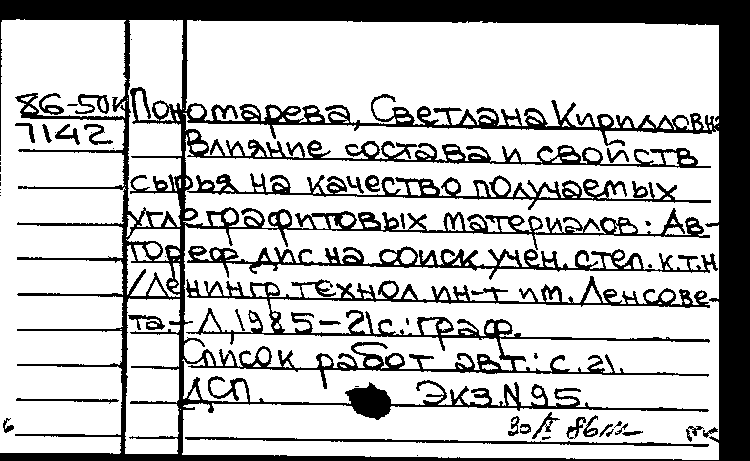 86-50к Пономарева, Светлана Кирилловна
7142 Влияние состава и свойств
сырья на качество получаемых
углеграфитовых материалов: Ав-
тореф. дис. на соиск. учен. степ. к.т.н
/Ленингр. технол. ин-т им. Ленсове-
та.- Л, 1985-21с.: граф.
Список работ авт.: с. 21.
ДСП. Экз. N 95.